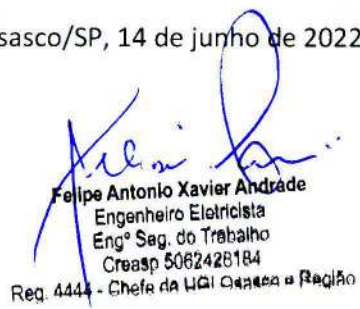 sasco/SP, 14 de junho de 2022
Felipe Antonio Xavier Andrade
Engenheiro Eletricista
Engº Seg. do Trabalho
Creasp 5062428184
Reg. 4444 - Chefe da UGI Osasco e Região